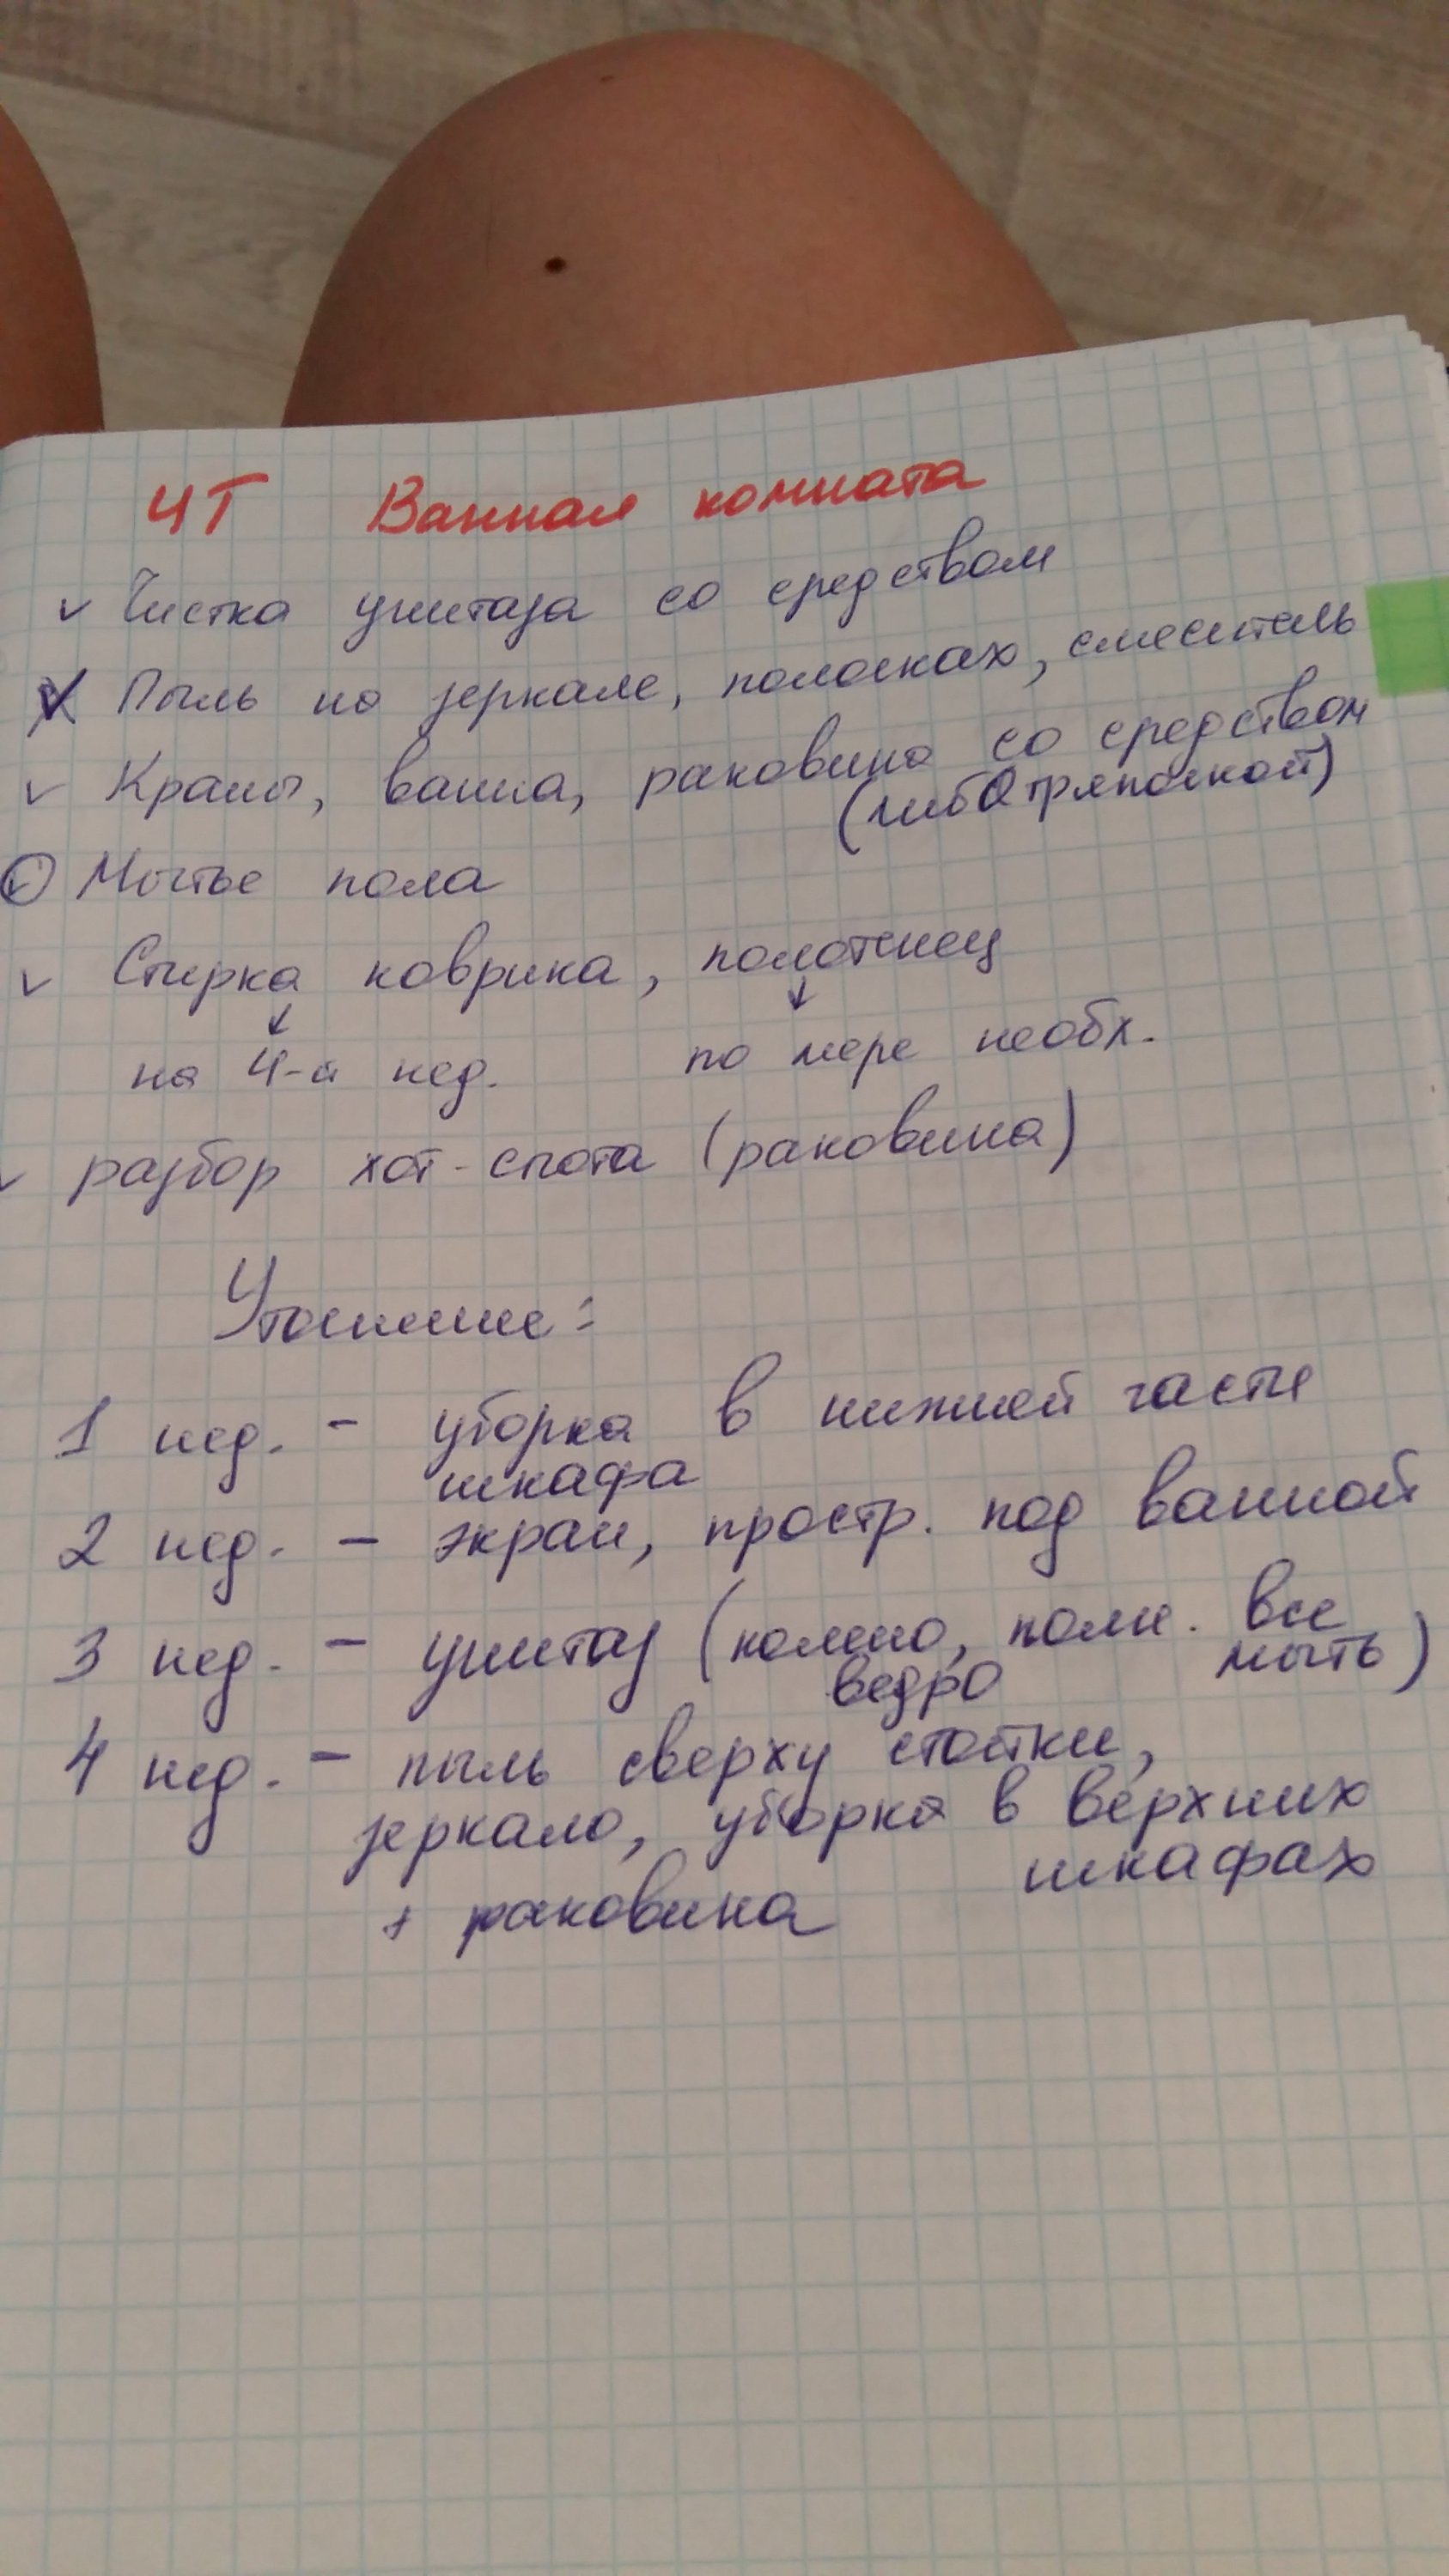 ЧТ Ванная комната
v Чистка унитаза со средством
v Пыль на зеркале, полочках, смеситель
v Краны, ванна, раковина со средством
(либо тряпочкой)
v Мытье пола
v Стирка коврика, полотенец
↓ ↓
на 4-й нед. по мере необх.
v разбор хот-спота (раковина)
Уточнение:
1 нед. - уборка в нижней части
шкафа
2 нед. - экран, простр. под ванной
3 нед. - унитаз (колено, полн. все
ведро мыть)
4 нед. - пыль сверху стойки,
зеркало, уборка в верхних
шкафах
+ раковина